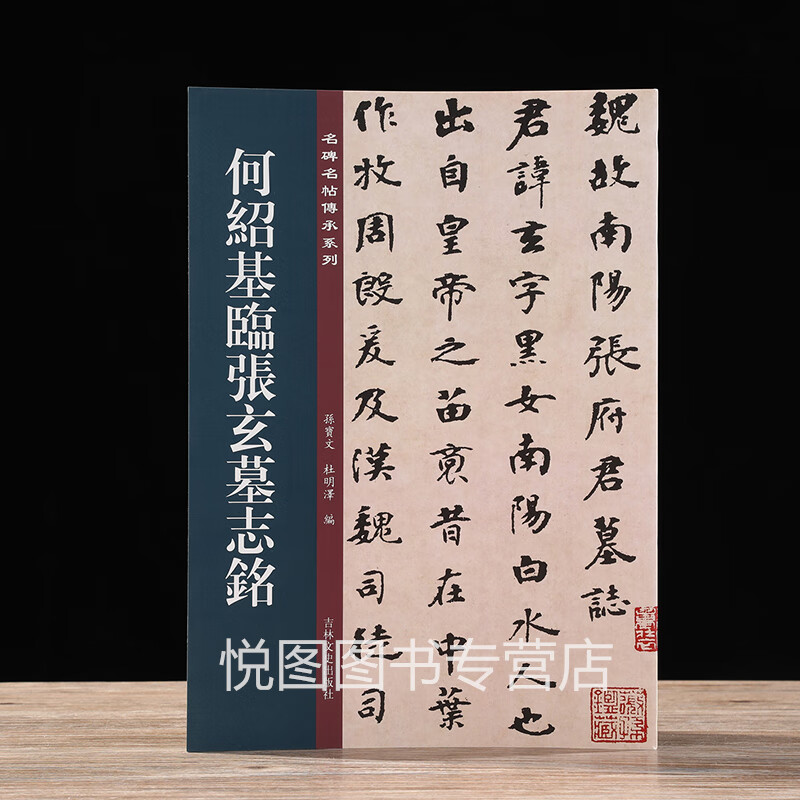 何紹基臨張玄墓志銘
名碑名帖傳承系列
孫寶文 杜明澤 編
吉林文史出版社
魏故南陽張府君墓誌
君諱玄字黑女南陽白水人也
出自皇帝之苗裔昔在中葉
作牧周殷爰及漢魏司徒司
悦图图书专营店